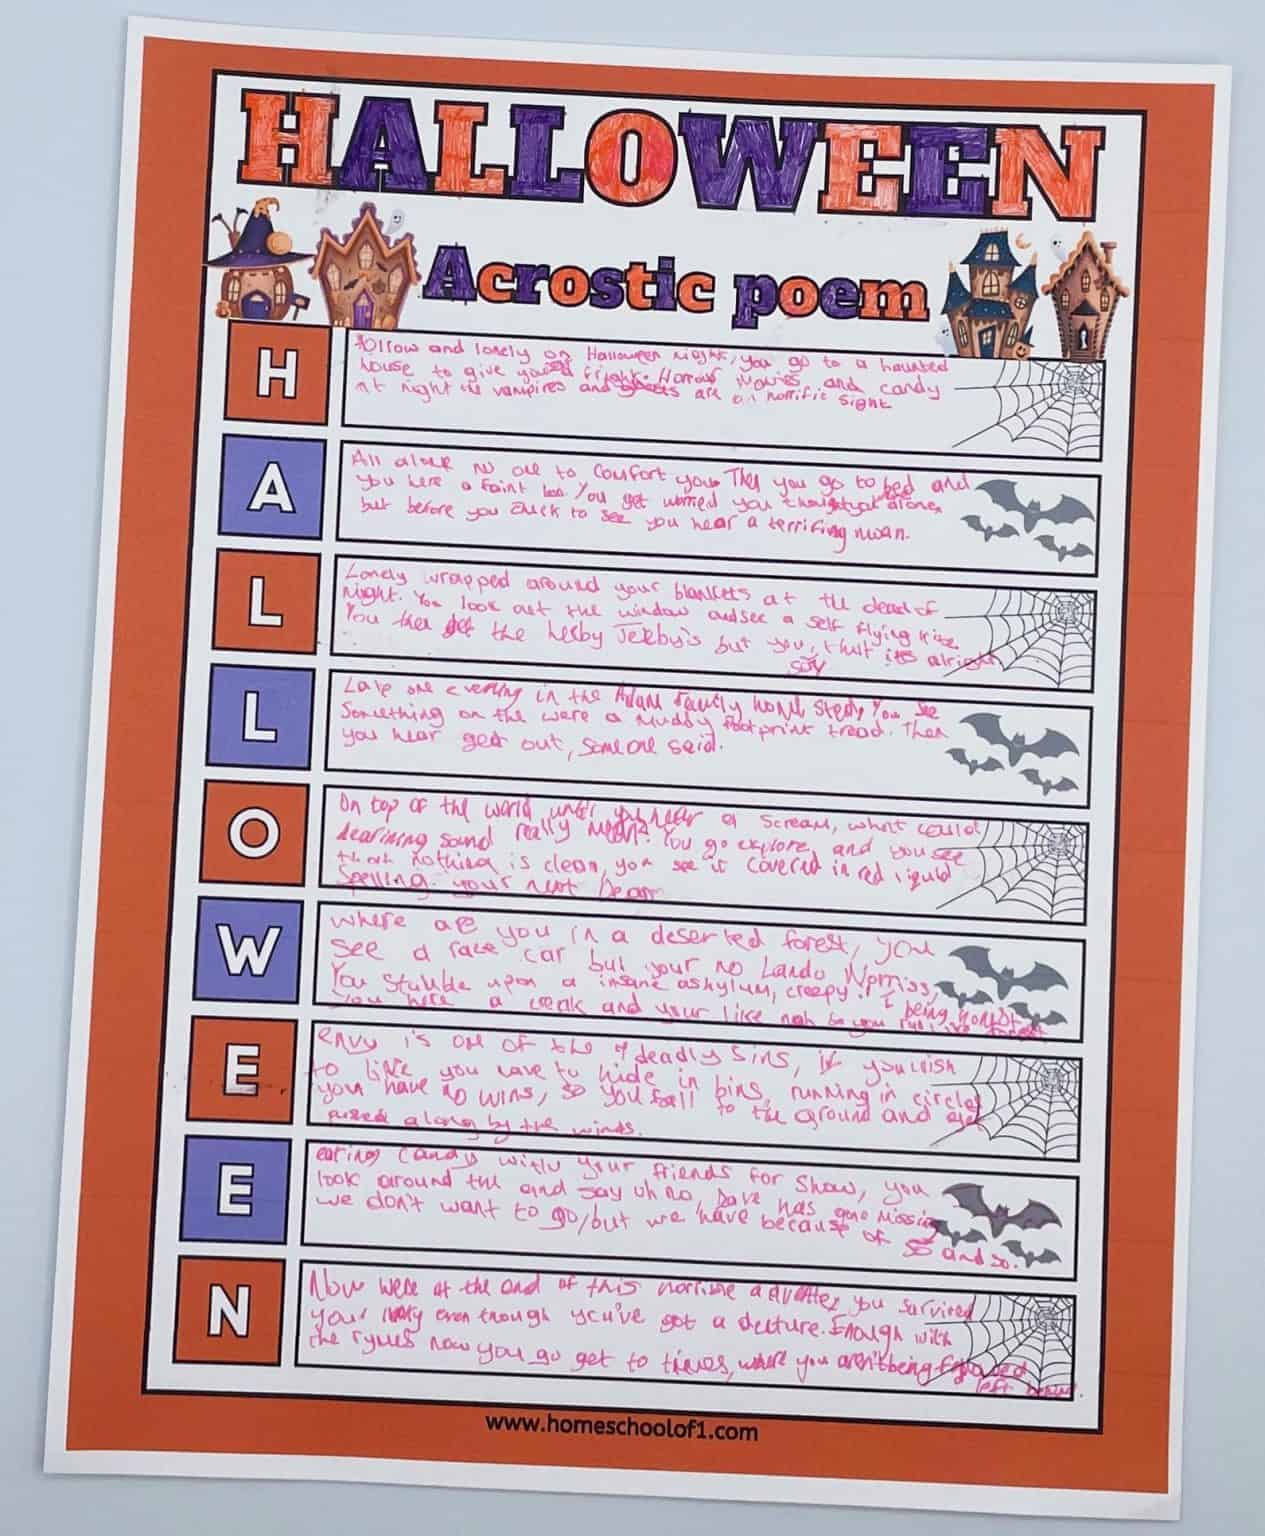 HALLOWEEN
Acrostic poem
H
Hollow and lonely on Halloween night, you go to a haunted
house to give you a fright. Horror Movies and candy
at night the vampires and ghosts are an horrific sight
A
All alone no one to comfort you. Then you go to bed and
you here a faint boo. You get worried you thought alone,
but before you duck to see you hear a terrifing moan.
L
Lonely wrapped around your blankets at the dead of
night. You look out the window and see a self flying kite.
You then get the heeby Jeeby's but you, that its alright.
say
L
Late one evening in the Adam family home study You see
Something on the were a muddy footprint tread. Then
you hear get out, someone said.
O
On top of the world until you hear a scream, what could
deafining sound really mean? You go explore, and you see
that nothing is clean, you see it covered in red liquid
Spelling your next
W
where are you in a deserted forest, you
see a race car but your no Lando Norriss,
You stumble upon a insane asylum, creepy! I being honest
you here a creak and your like nah so you
E
envy is one of the 7 deadly sins, if you wish
to live you have to hide in bins, running in circles
you have no wins, so you fall to the ground and get
along by the winds.
E
eating candy with your friends for show, you
look around the and say uh no, Dave has gone missing
we don't want to go, but we have because of so and so.
N
Now were at the end of this horrible adventer, you survived
your even though you've got a Enough with
the rymes now you go get to where you aren't being followed
left
www.homeschoolof1.com